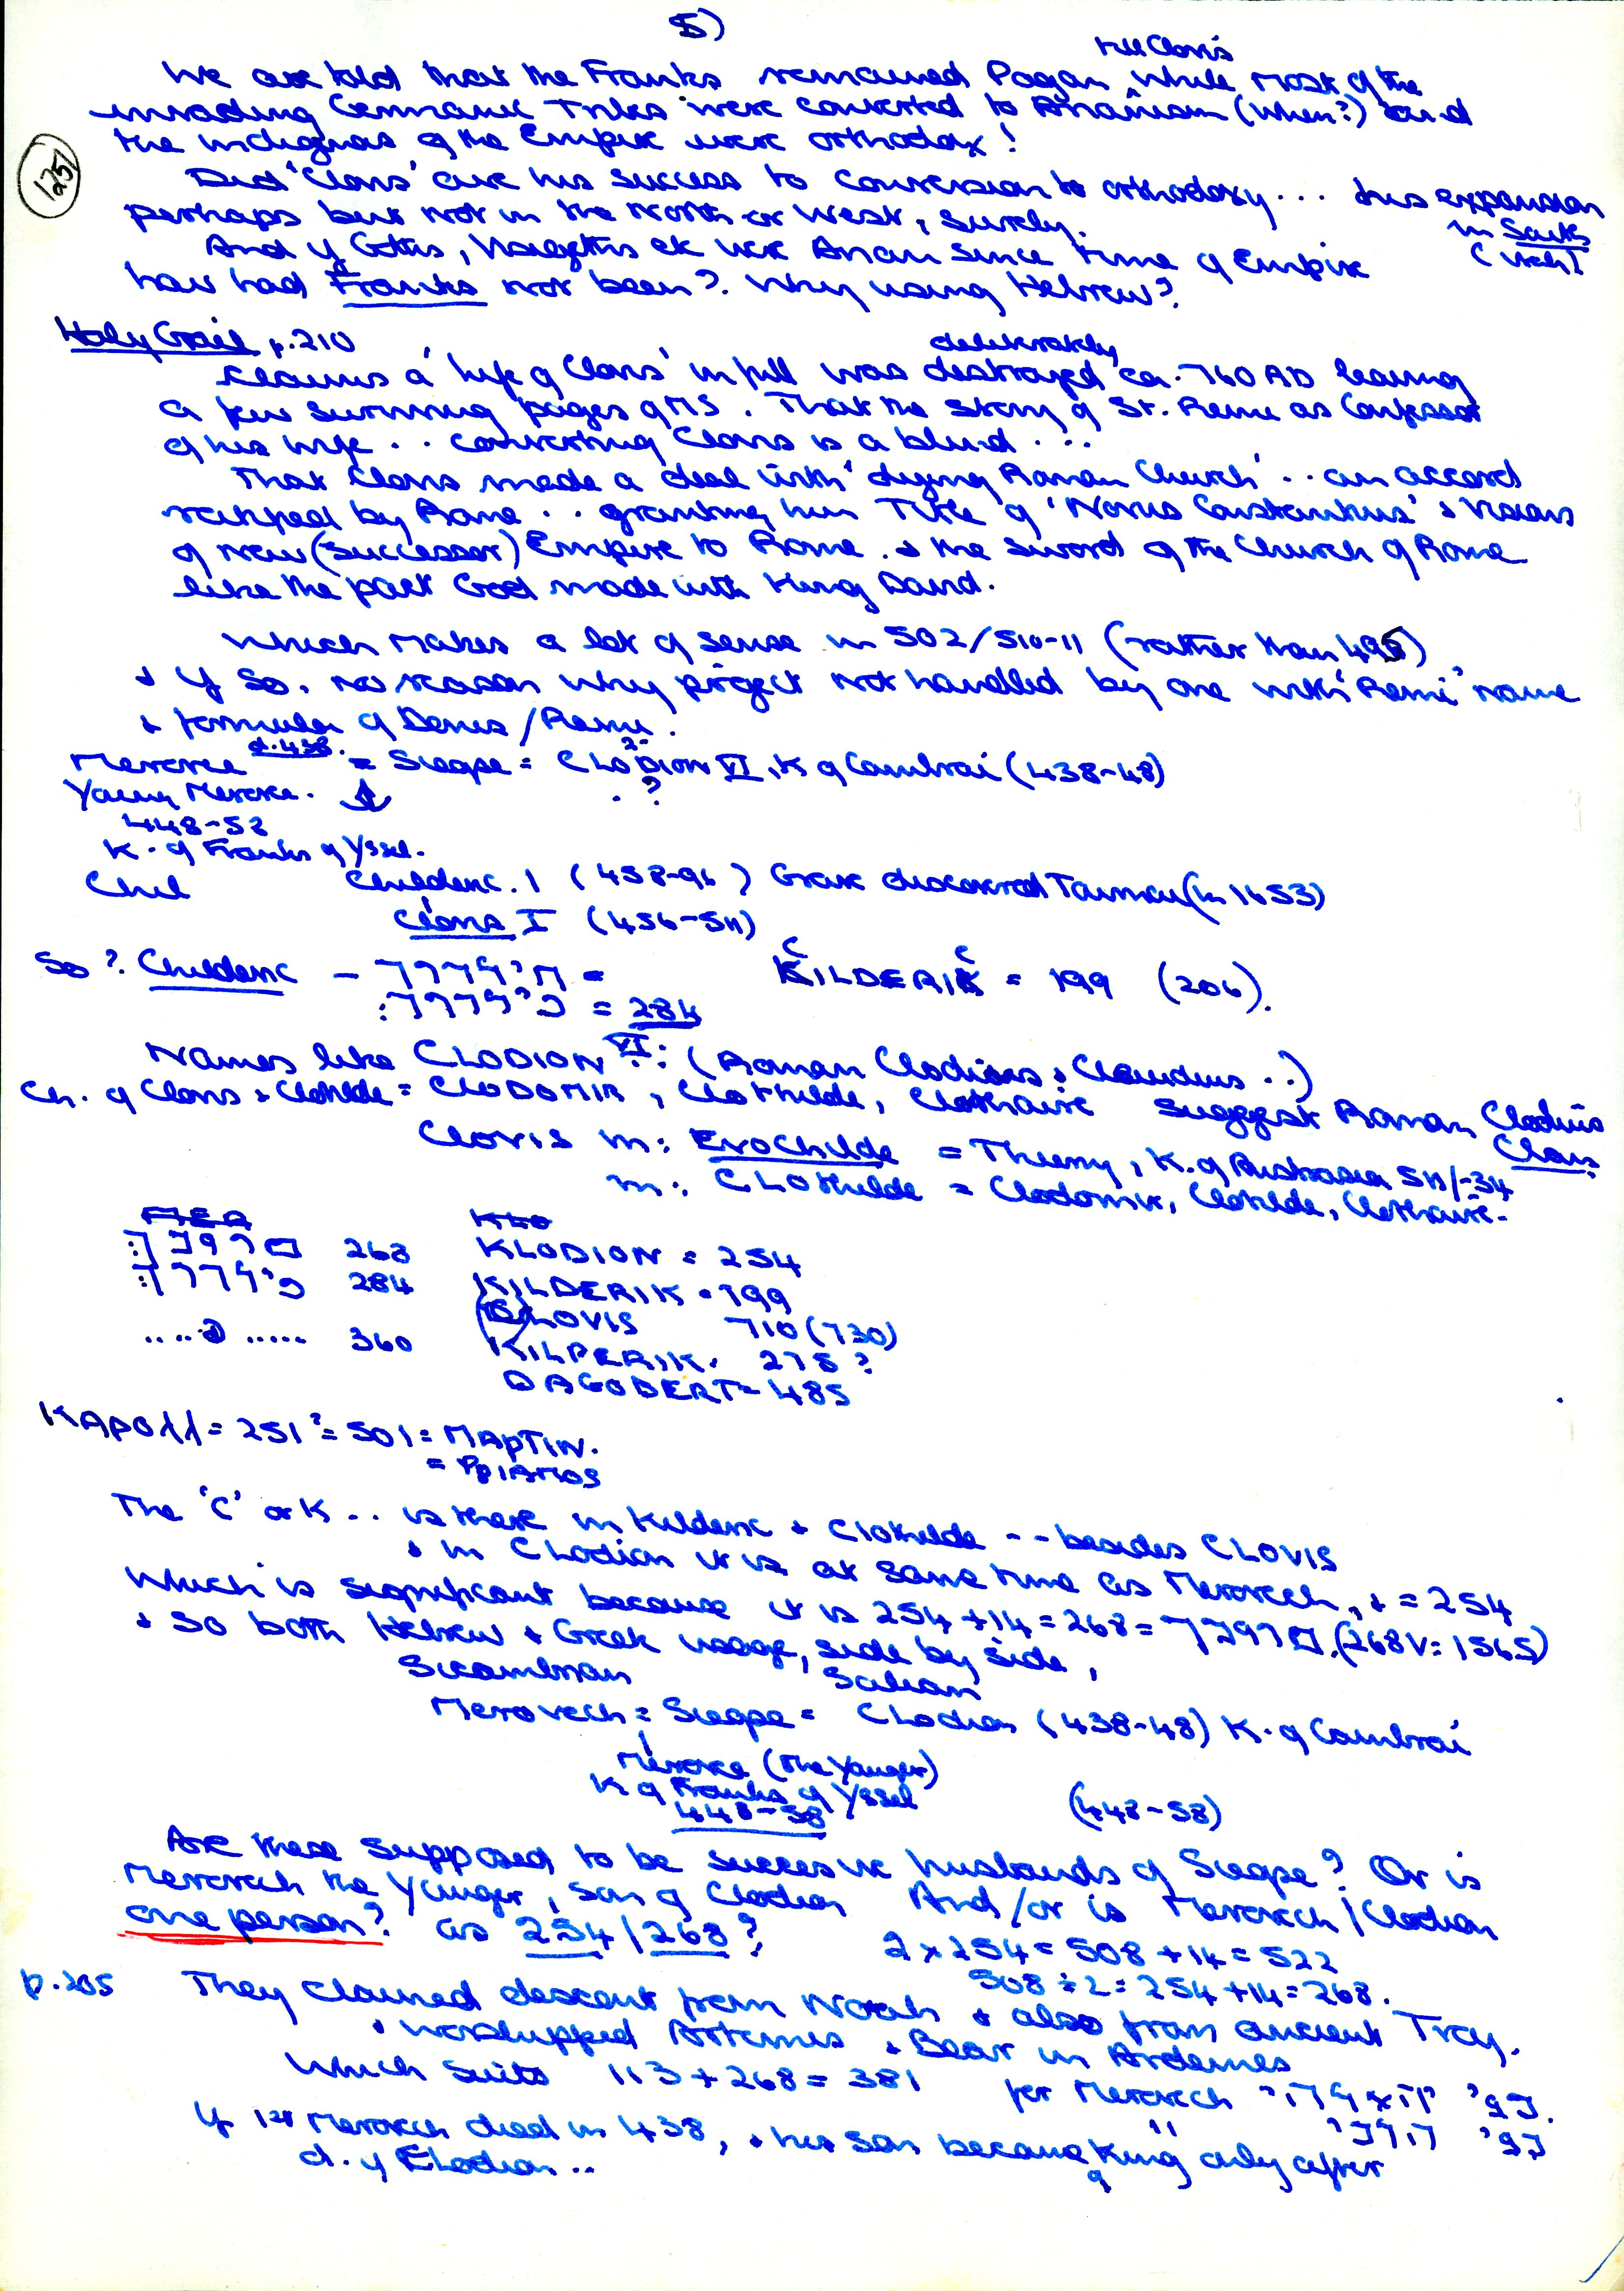 5)
till Clovis
We are told that the Franks remained Pagan while most of the
invading Germanic Tribes were converted to Arianism (when?) and
the indigenas of the Empire were orthodox!
125
Did 'Clovis' owe his success to conversion to orthodoxy... his expansion
perhaps but not in the North or West, surely.
in South
And if Goths, Visigoths etc were Arian since time of Empire
how had Franks not been? Why using Hebrew?
Holy Grail p.210
deliberately
Claims a 'life of Clovis' in full was destroyed ca. 760 AD leaving
a few surviving pages of MS. That the story of St. Remi as Confessor
of his wife .. converting Clovis is a blind ...
That Clovis made a deal with 'dying Roman Church' .. an accord
ratified by Rome .. granting him Title of 'Novus Constantinus' + visions
of new (successor) Empire to Rome. + the sword of the Church of Rome
like the pact God made with King David.
Which makes a lot of sense in 502/510-11 (rather than 496)
+ if so. no reason why project not handled by one with 'Remi' name
+ formula of Denis/Remi.
Merovee d. 438. = Siegse = CLODION VI, K of Cambrai (438-48)
Young Merovee. ?
448-58
K. of Franks of Yssel.
Chil Childeric. I (458-96) Grave discovered Tournai (in 1653)
Clovis I (456-511)
So? Childeric - = KILDERIK = 199 (206).
= 284
Names like CLODION VI: (Roman Clodius + Claudius ..)
Ch. of Clovis + Clotilde = CLODOMIR, Clothilde, Clothaire suggest Roman Clodius
Clan.
CLOVIS m: Evochilde = Thierry, K. of Austrasia 511/-34
m: CLOthilde = Clodomir, Clotilde, Clothaire.
268 KLODION = 254
284 KILDERIK = 199
CLOVIS 710 (730)
..... 360 KILPERIK. 275?
DAGOBERT = 485
KAPOλλ = 251 ?= 501 = MAPTIN.
= PPIAMOS
The 'C' or K .. is there in Kilderic + Clothilde -- besides CLOVIS
+ in CLodion it is at same time as Merovech, + = 254
Which is significant because it is 254 + 14 = 268 = (268 V: 1565)
+ so both Hebrew + Greek usage, side by side,
Sicambrian Salian
Merovech = Siegse = CLodion (438-48) K. of Cambrai
Merovee (the Younger)
K of Franks of Yssel
448-58 (448-58)
Are these supposed to be successive husbands of Siegse? Or is
Merovech the Younger, son of Clodion And/or is Merovech/Clodion
one person? as 254/268?
2 x 254 = 508 + 14 = 522
508 ÷ 2 = 254 + 14 = 268.
p.205 They claimed descent from Noah + also from ancient Troy.
+ worshipped Artemis + Bear in Ardennes
Which suits 113 + 268 = 381 for Merovech
If 1st Merovech died in 438, + his son became King only after
d. of Clodion ..